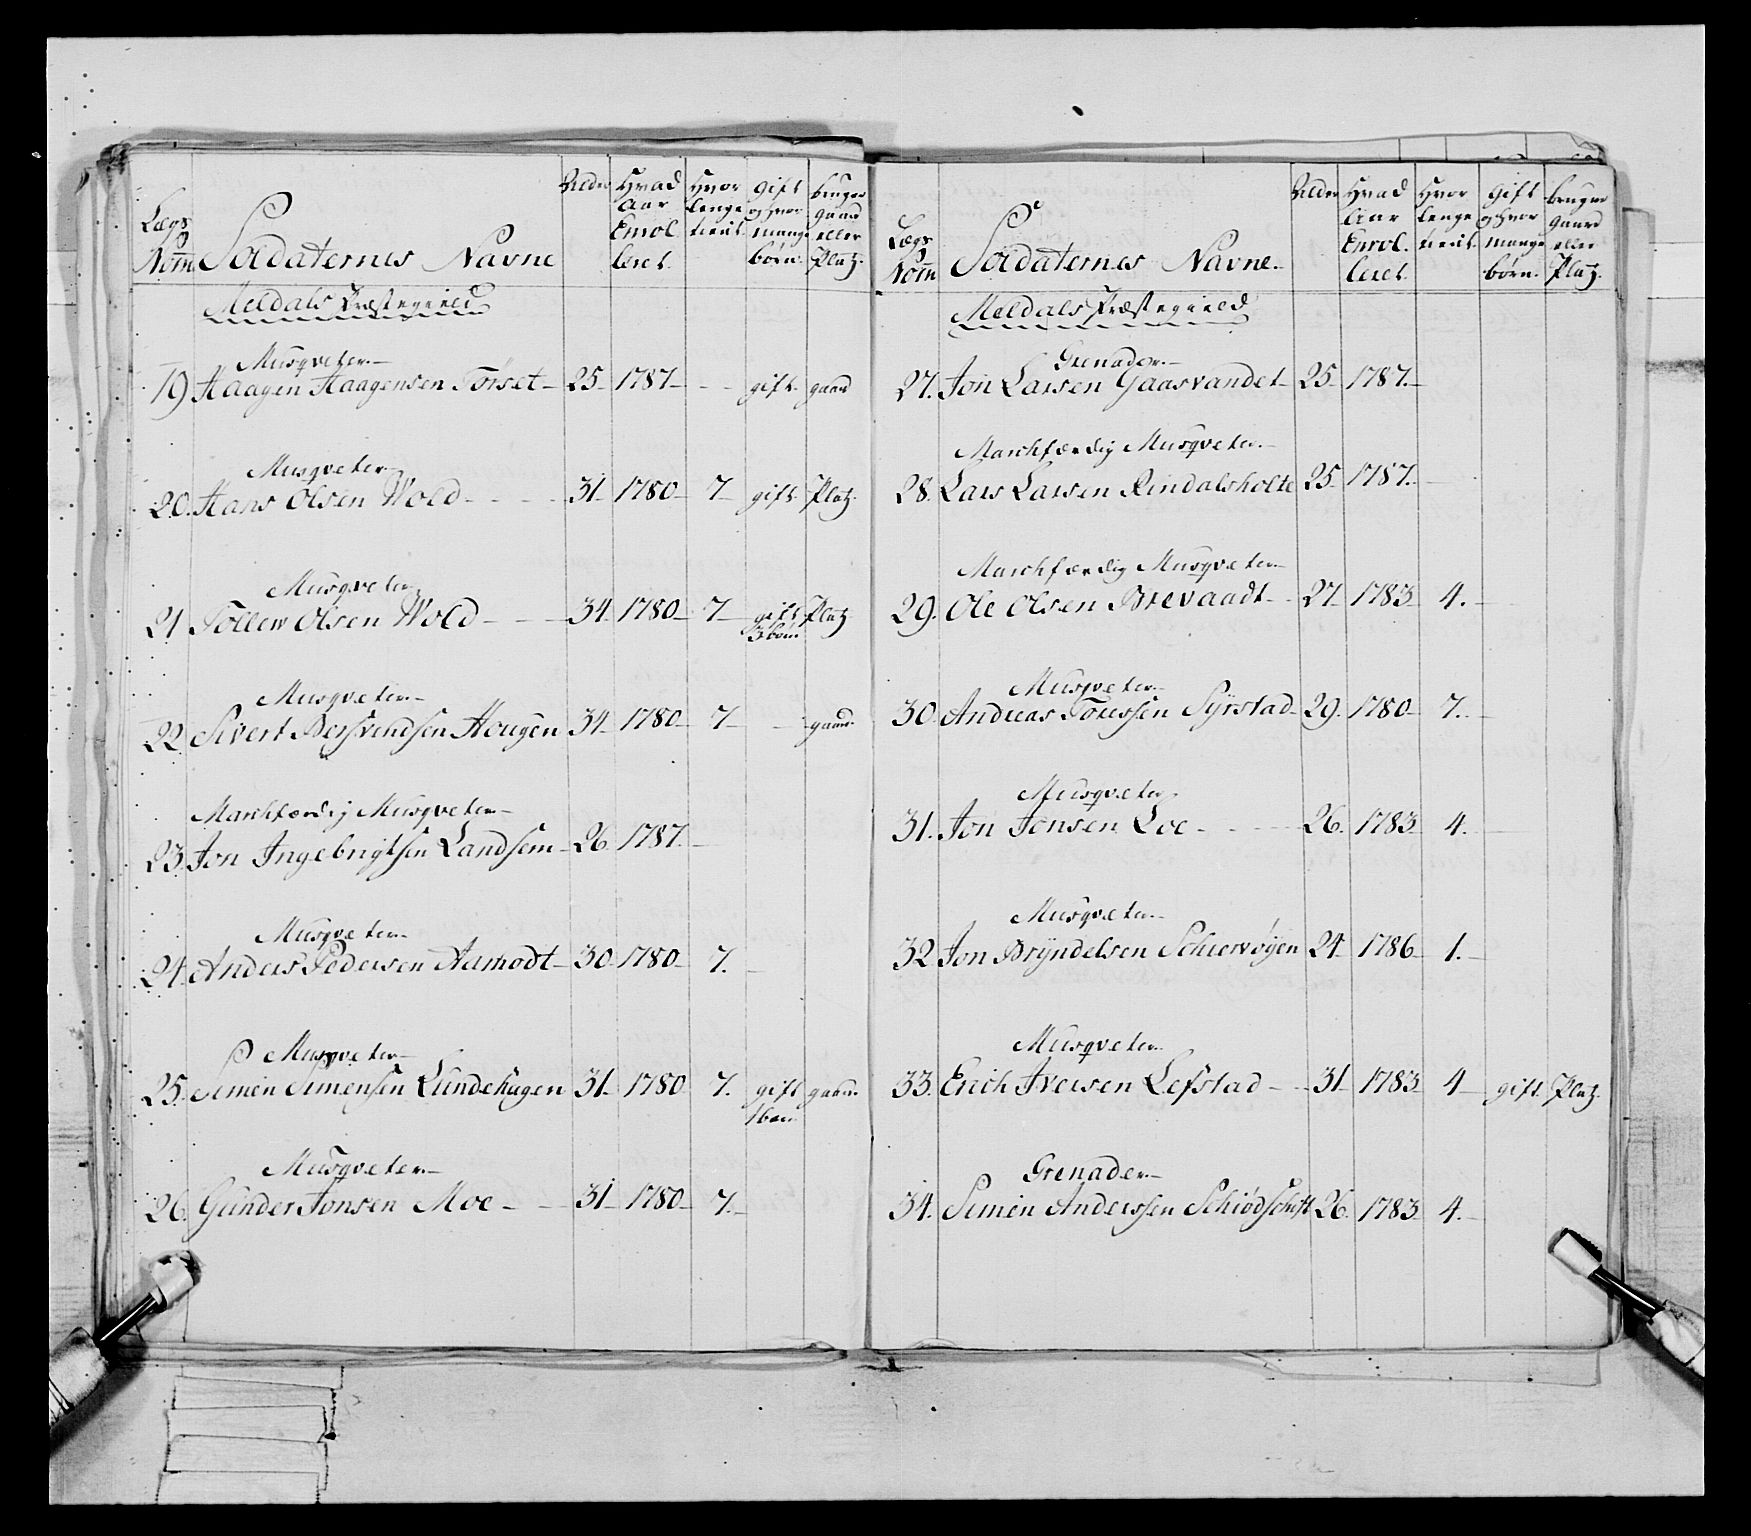 Lægs Nom̄ Soldaternes Navne Alder Hvad Aar Enrolleret Hvor lenge tient gift og Hvor mange børn. bruger gaard eller Platz.
Meldals Præstegield
Musqveter
19 Haagen Haagensen Torset 25 1787 gift gaard
Musqveter
20. Hans Olsen Wold 31 1780 7 gift Platz.
Musqveter
21 Tollew Olsen Wold 34 1780 7 gift Platz.
3 børn
Musqveter
22 Sivert Bersvendsen Hougen 34 1780 7 gaard
Marchfærdig Musqveter
23. Jon Ingebrigtsen Landsem 26 1787.
Musqveter
24. Anders Pedersen Aamodt 30 1780 7.
Musqveter
25. Simen Simensen Lundehagen 31 1780 7. gift gaard
1 barn
Musqveter
26. Gunder Jonsen Moe 31 1780 7.
Lægs Nom̄ Soldaternes Navne. Alder Hvad Aar Enrolleret Hvor lenge tient gift og Hvor mange børn. bruger gaard eller Platz.
Meldals Præstegield
Grenader
27. Jon Larsen Gaasvandet 25 1787.
Marchfærdig Musqveter
28. Lars Larsen Rindalsholte 25 1787.
Marchfærdig Musqveter
29. Ole Olsen Brevaadt 27 1783 4.
Musqveter
30. Andreas Toressen Syrstad 29. 1780 7.
Musqveter
31. Jon Jonsen Loe 26. 1783 4.
Musqveter
32 Jon Bryndelsen Schiervøyen 24 1786 1.
Musqveter
33. Erich Iversen Lefstad 31 1783 4 gift. Platz.
Grenader
34. Simen Anderssen Schiødschift 26. 1783 4.